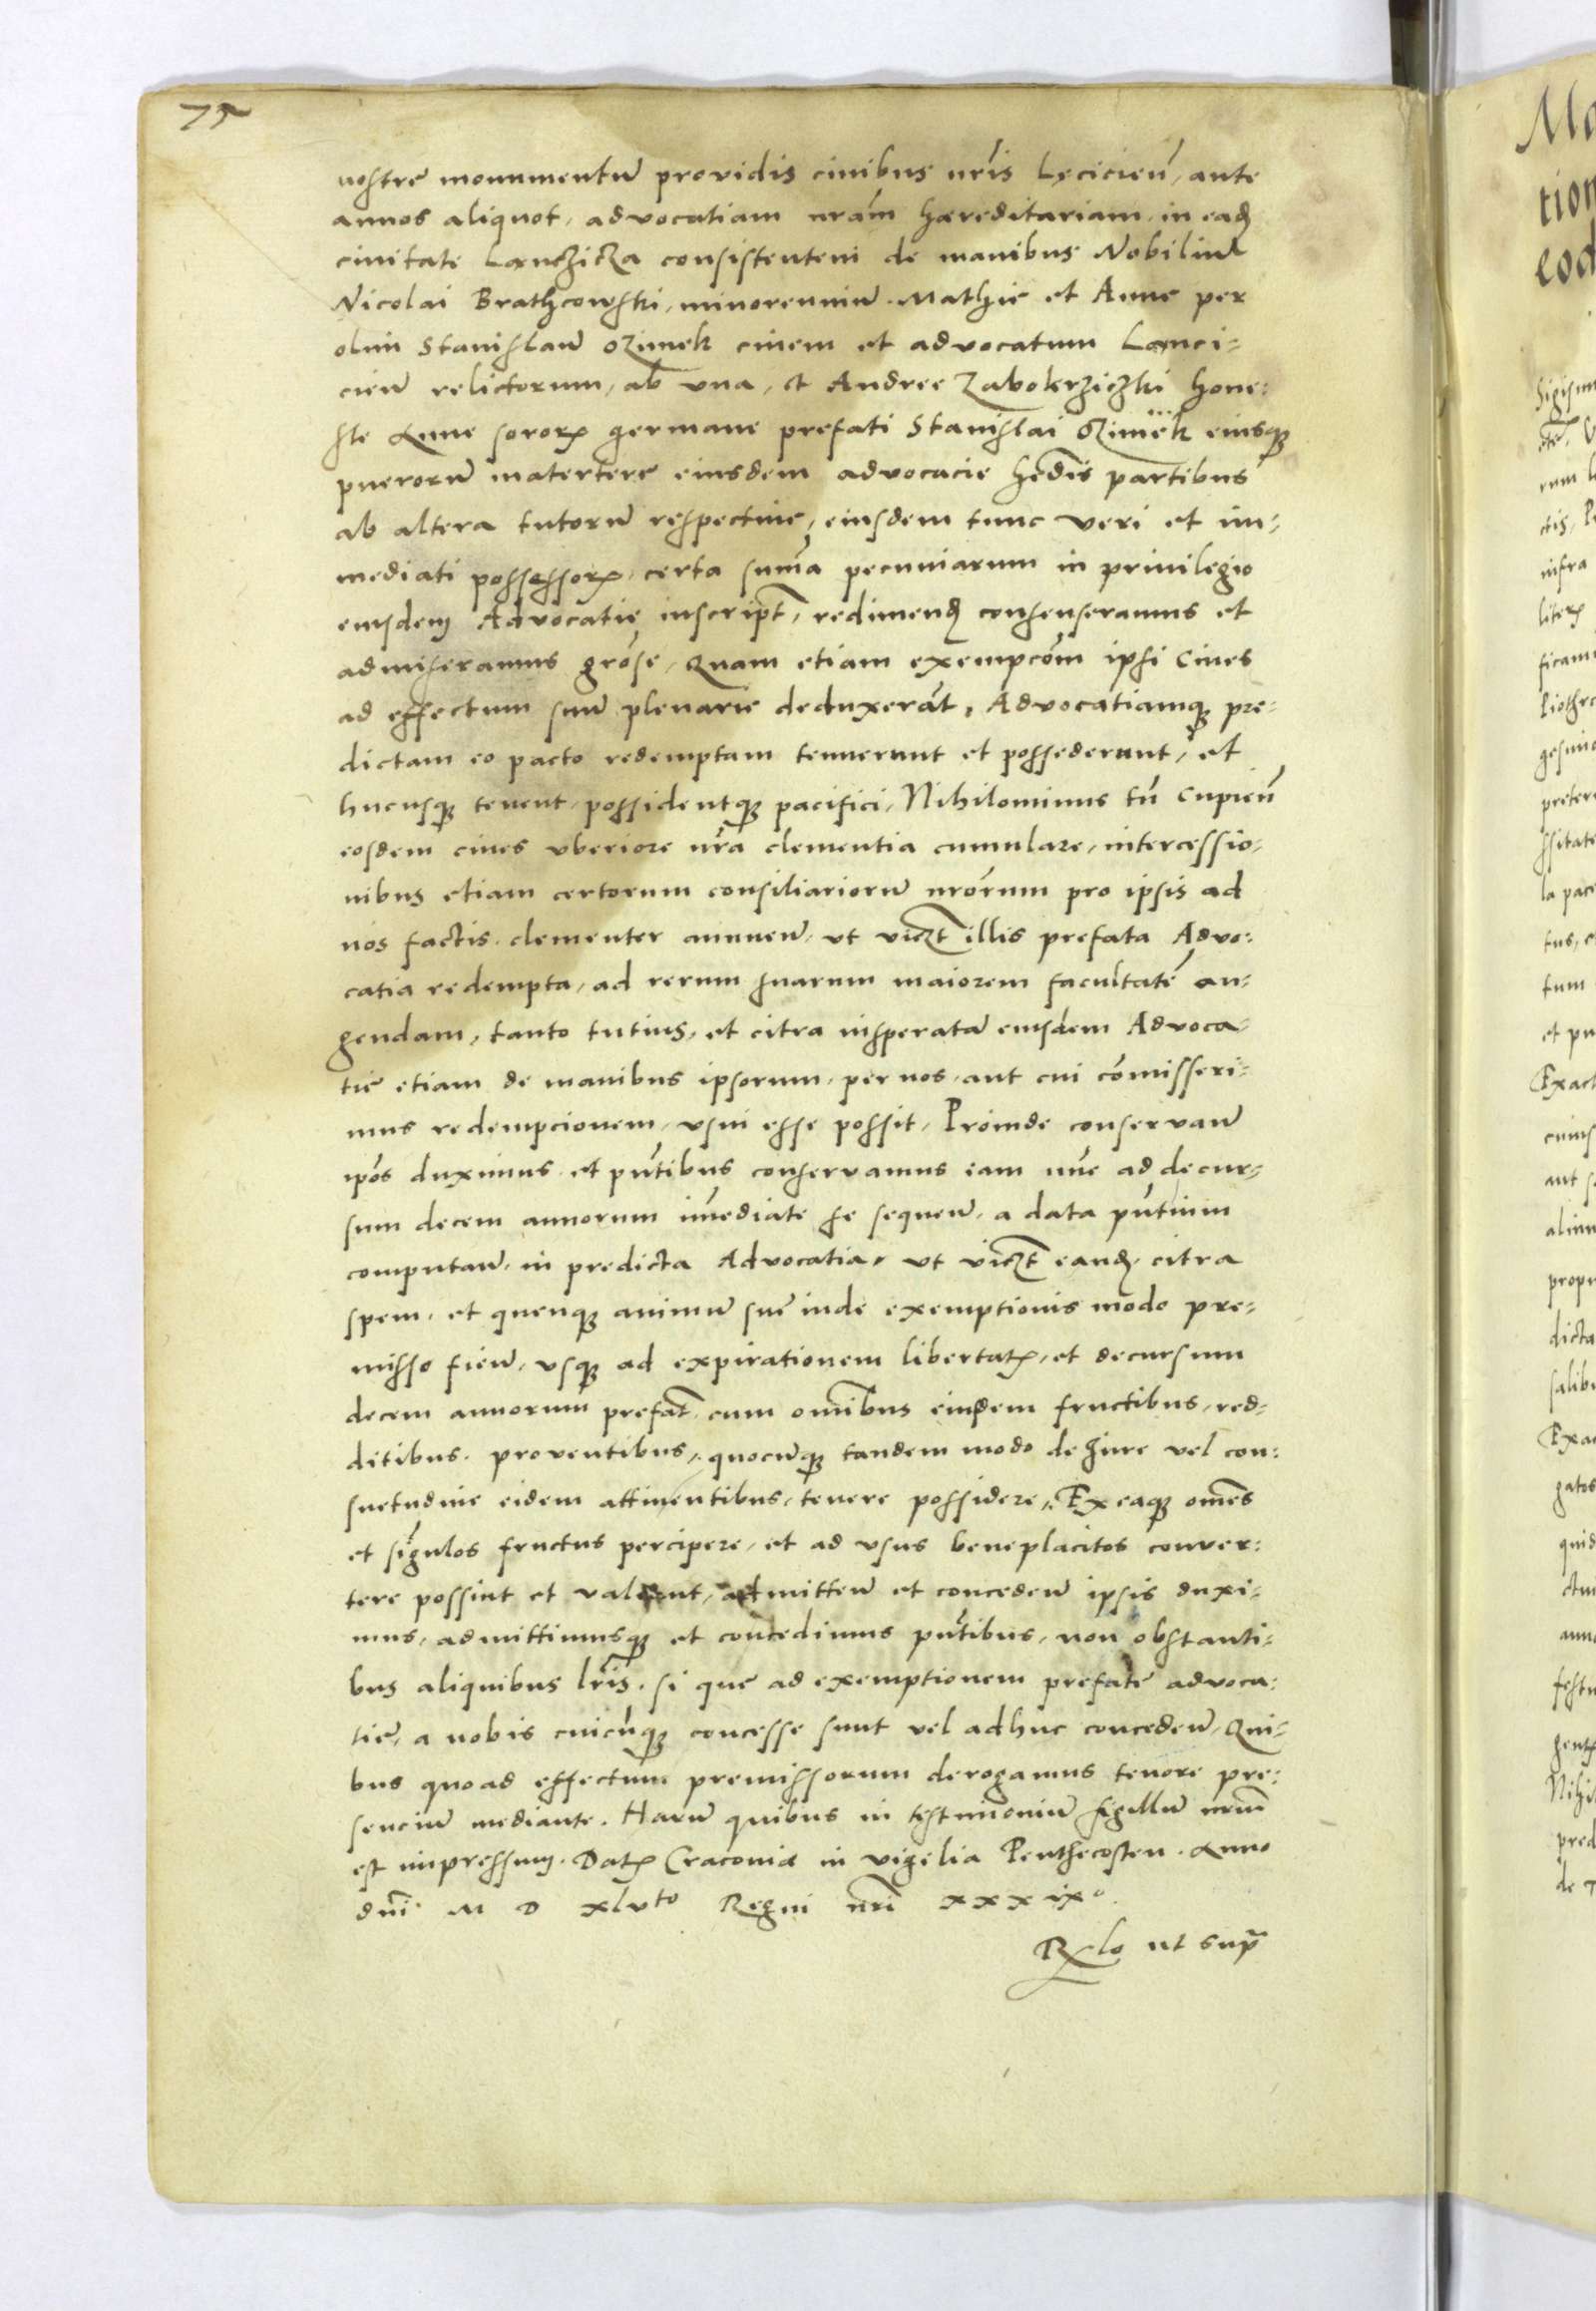 75
nostrę monumentū providis civibus nr̄is Lęcicieñ, ante
annos aliquot, advocatiam nrām hæreditariam, in eadꝫ
civitate Lancziczza consistentem de manibus Nobiliū
Nicolai Brathcowski, minorenniū Mathię et Anne per
olim Stanislaū Ozimek civem et advocatum Lanci-
cieñ relictorum, ab una, et Andree Zabokrziczki hone-
ste Anne sororꝫ germane prefati Stanislai Ozimek eiusqꝫ
puerorū materterę eiusdem advocacie hędis partibus
ab altera tutorū respective, eiusdem tunc veri et im-
mediati possessorꝫ, certa sum̄a pecuniarum in privilegio
eiusdem Advocatię inscript, redimendꝫ consenseramus et
admiseramus grōse, Quam etiam exempcōm ipsi Cives
ad effectum suū plenarię deduxerāt, Advocatiamqꝫ pre-
dictam eo pacto redemptam tenuerunt et possederunt, et
hucusqꝫ tenent possidentqꝫ pacifici, Nihilominus tñ cupieñ
eosdem cives uberiore nrā clementia cumulare, intercessio-
nibus etiam certorum consiliariorū nrōrum pro ipsis ad
nos factis, clementer annueñ, ut viczt illis prefata Advo-
catia redempta, ad rerum suarum maiorem facultatē au-
gendam, tanto tutius, et citra insperatā eiusdem Advoca-
tię etiam de manibus ipsorum, per nos, aut cui com̄isseri-
mus redempcionem, usui esse possit, Proinde conservañ
ipōs duximus et pñtibus conservamus iam nūc ad decur-
sum decem annorum im̄ediate se sequeñ, a data pñtium
computañ, in predicta Advocatia, ut viczt eandꝫ citra
spem, et quenqꝫ animū suę inde exemptionis modo pre-
misso fieñ, usqꝫ ad expirationem libertatꝫ, et decursum
decem annorum prefat, cum om̄ibus eiusdem fructibus, red-
ditibus, proventibus, quocūqꝫ tandem modo de Iure vel con-
suetudine eidem attinentibus, tenere possidere, Ex eaqꝫ om̄es
et sīgulos fructus percipere, et ad usus beneplacitos conver-
tere possint et valeant, admitteñ et concedeñ ipsis duxi-
mus, admittimusqꝫ et concedimus pñtibus, non obstanti-
bus aliquibus lr̄is, si quę ad exemptionem prefatę advoca-
tię, a nobis cuicūqꝫ concesse sunt vel adhuc concedeñ, Qui-
bus quoad effectum premissorum derogamus tenore pre-
senciū mediante. Harū quibus in testimoniū sigillū nrūm
est impressum. Datꝫ Cracoviæ in vigilia Penthecosten. Anno
dn̄i M D xlvto Regni nr̄i xxxixo.
Rlo ut supra